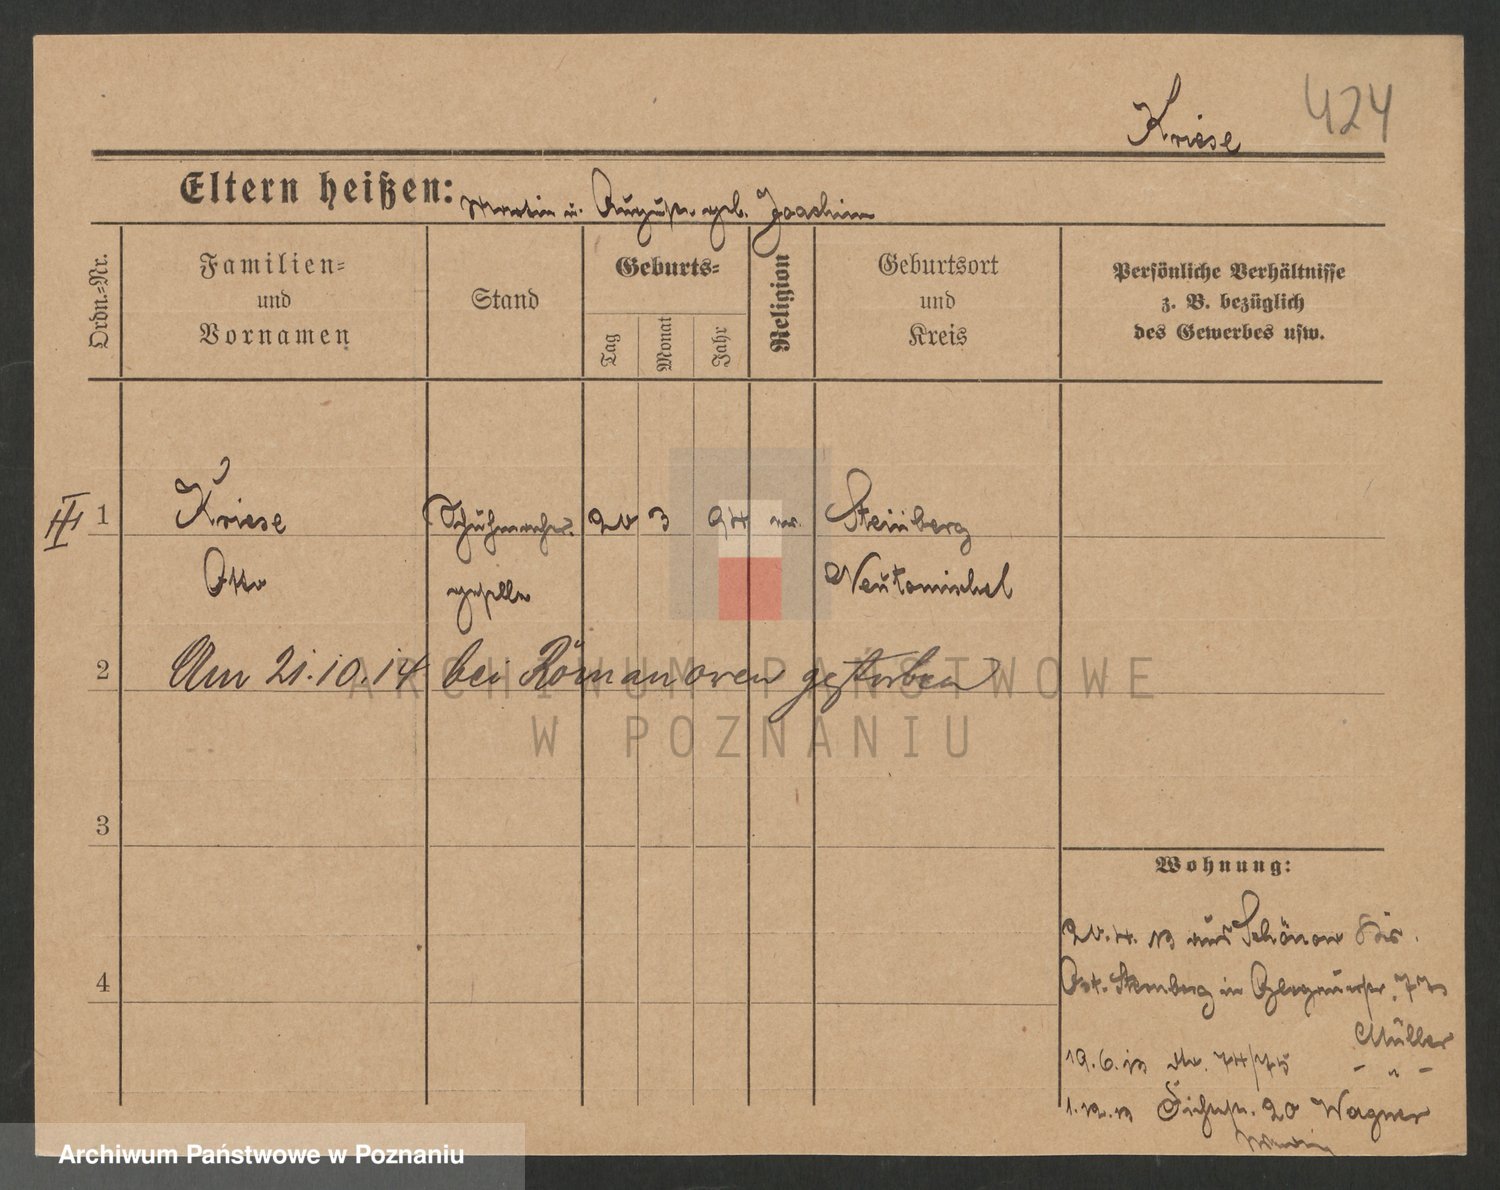 Kriese 424
Eltern heißen: Martin u. August. geb. Joachim
Ordn.=Nr.
Familien=
und
Vornamen
Stand
Geburts=
Tag
Monat
Jahr
Religion
Geburtsort
und
Kreis
Persönliche Verhältnisse
z. B. bezüglich
des Gewerbes usw.
III 1 Kriese Schuhmacher 20 3 94 ev. Steinberg
Otto geselle Neutomischel
2 Am 21.10.14 bei gestorben
3
4
Wohnung:
aus Schönow Krs.
Ost-Sternberg in Glogauerstr.
Müller
19.6.13 74/75 - " -
20 Wagner
ARCHIWUM PAŃSTWOWE
W POZNANIU
Archiwum Państwowe w Poznaniu